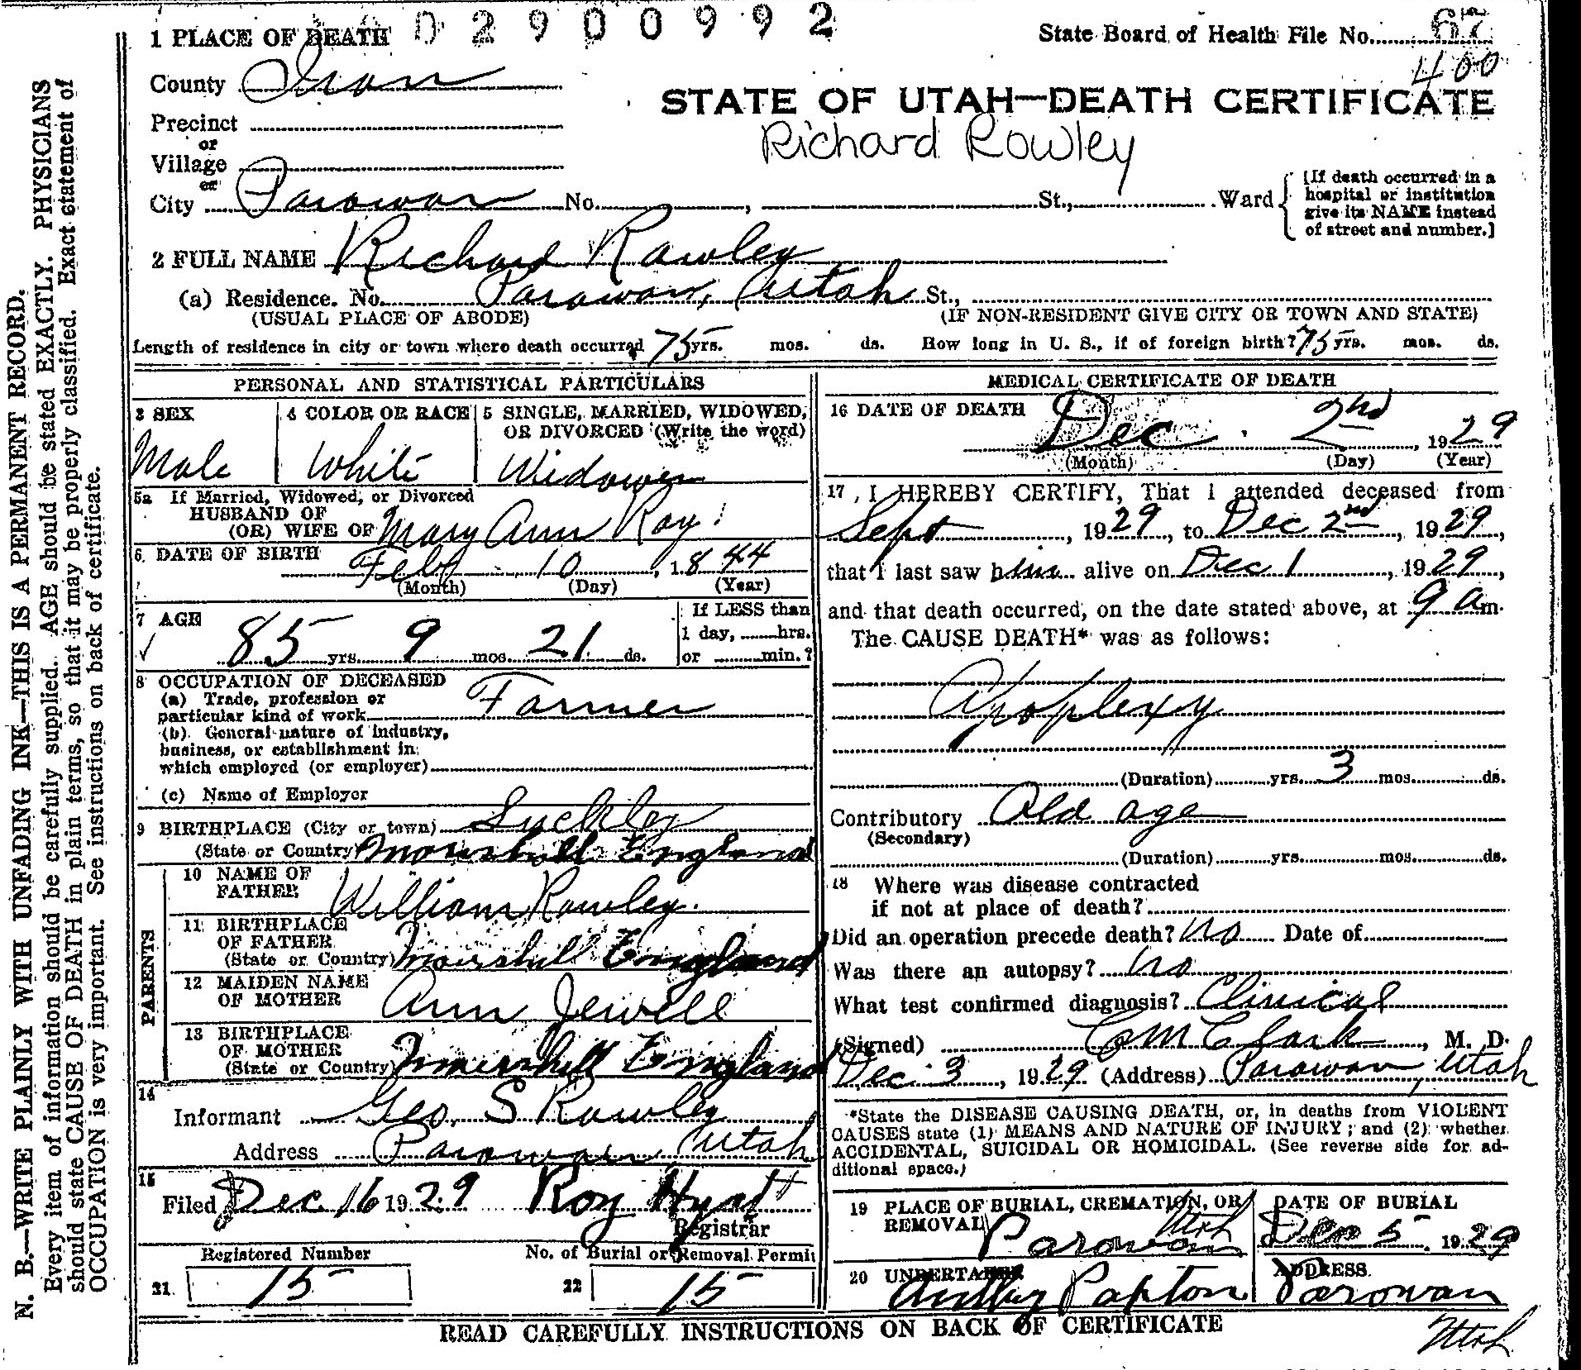 02900992
1 PLACE OF DEATH
State Board of Health File No. 67
400
County Iron
STATE OF UTAH—DEATH CERTIFICATE
Richard Rowley
Precinct
or
Village
or
City Parowan No. , St., Ward
[If death occurred in a
hospital or institution
give its NAME instead
of street and number.]
2 FULL NAME Richard Rowley
(a) Residence. No. Parowan, Utah St.,
(USUAL PLACE OF ABODE) (IF NON-RESIDENT GIVE CITY OR TOWN AND STATE)
Length of residence in city or town where death occurred 75 yrs. mos. ds. How long in U. S., if of foreign birth? 75 yrs. mos. ds.
PERSONAL AND STATISTICAL PARTICULARS
3 SEX
Male
4 COLOR OR RACE
White
5 SINGLE, MARRIED, WIDOWED,
OR DIVORCED (Write the word)
Widower
5a If Married, Widowed, or Divorced
HUSBAND OF
(OR) WIFE OF Mary Ann Roy
6 DATE OF BIRTH Feb 10, 1844
(Month) (Day) (Year)
7 AGE
85 yrs. 9 mos. 21 ds.
If LESS than
1 day, hrs.
or min.?
8 OCCUPATION OF DECEASED
(a) Trade, profession or
particular kind of work Farmer
(b) General nature of industry,
business, or establishment in
which employed (or employer)
(c) Name of Employer
9 BIRTHPLACE (City or town) Suckley
(State or Country) England
PARENTS
10 NAME OF
FATHER William Rowley.
11 BIRTHPLACE
OF FATHER
(State or Country) England
12 MAIDEN NAME
OF MOTHER Ann Jewell
13 BIRTHPLACE
OF MOTHER
(State or Country) England
14
Informant Geo S Rowley
Address Parowan, Utah
15
Filed Dec. 16 1929 Roy Hyatt
Registrar
Registered Number No. of Burial or Removal Permit
21 15 22 15
MEDICAL CERTIFICATE OF DEATH
16 DATE OF DEATH
Dec. 2nd, 1929
(Month) (Day) (Year)
17 I HEREBY CERTIFY, That I attended deceased from
Sept, 1929, to Dec 2nd, 1929,
that I last saw him alive on Dec 1, 1929,
and that death occurred, on the date stated above, at 9 am.
The CAUSE DEATH* was as follows:
Apoplexy
(Duration) yrs. 3 mos. ds.
Contributory Old age
(Secondary)
(Duration) yrs. mos. ds.
18 Where was disease contracted
if not at place of death?
Did an operation precede death? No Date of
Was there an autopsy? No
What test confirmed diagnosis? Clinical
(Signed) C M Clark, M. D.
Dec 3, 1929 (Address) Parowan, Utah
*State the DISEASE CAUSING DEATH, or, in deaths from VIOLENT
CAUSES state (1) MEANS AND NATURE OF INJURY; and (2) whether
ACCIDENTAL, SUICIDAL OR HOMICIDAL. (See reverse side for ad-
ditional space.)
19 PLACE OF BURIAL, CREMATION, OR
REMOVAL
Parowan Utah
DATE OF BURIAL
Dec 5. 1929
20 UNDERTAKER
ADDRESS
Parowan
Utah
READ CAREFULLY INSTRUCTIONS ON BACK OF CERTIFICATE
N. B.—WRITE PLAINLY WITH UNFADING INK—THIS IS A PERMANENT RECORD.
Every item of information should be carefully supplied. AGE should be stated EXACTLY. PHYSICIANS
should state CAUSE OF DEATH in plain terms, so that it may be properly classified. Exact statement of
OCCUPATION is very important. See instructions on back of certificate.